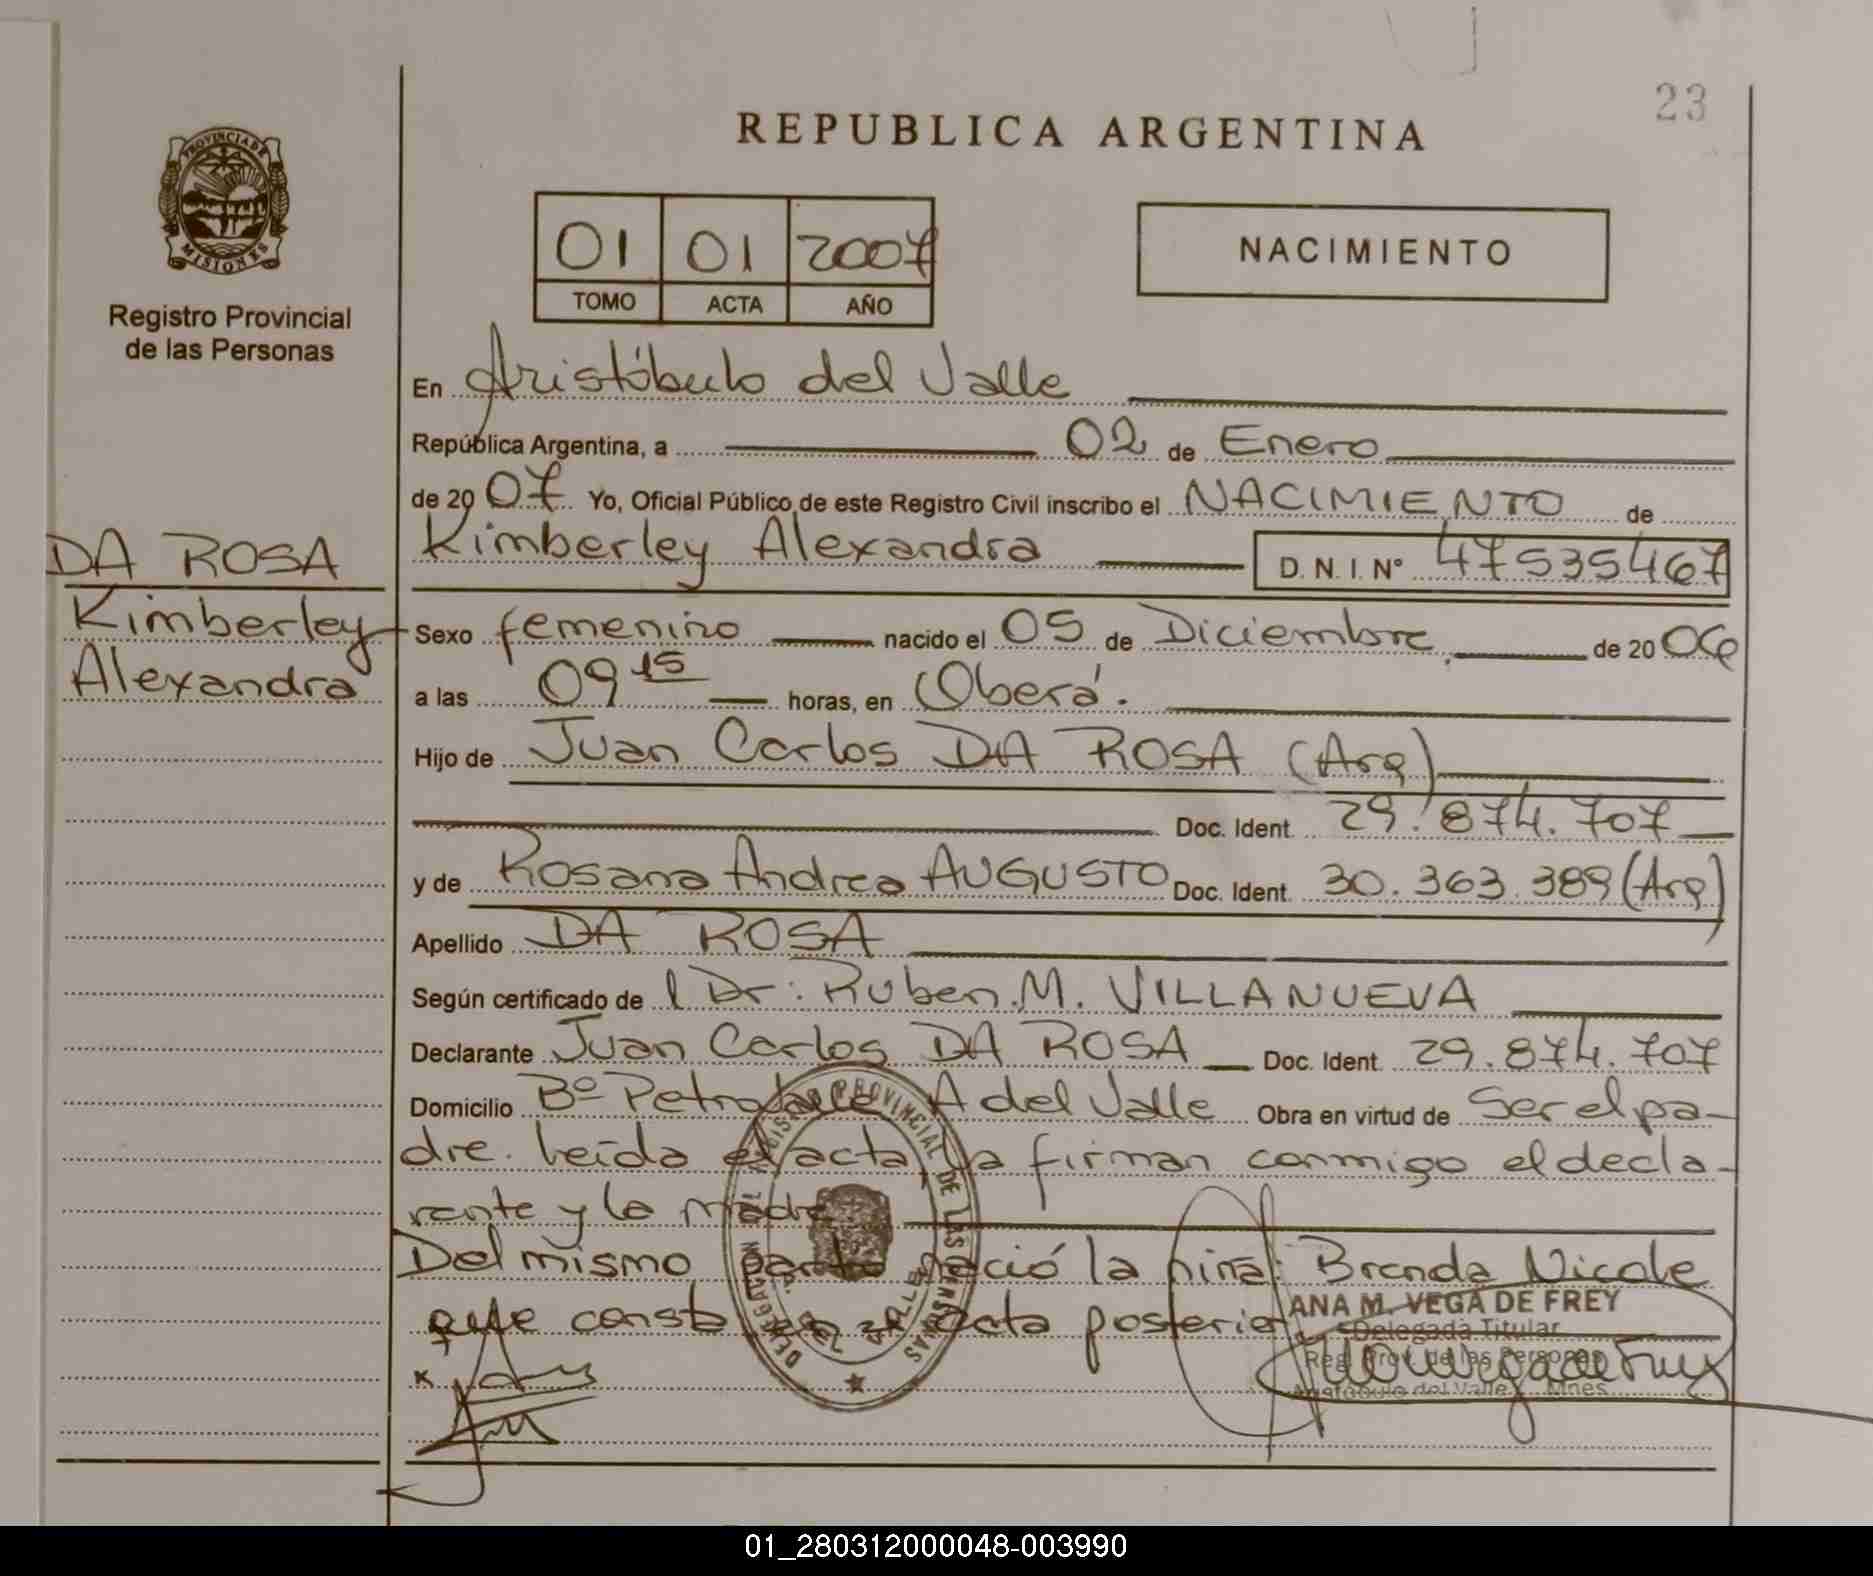 23
REPUBLICA ARGENTINA
PROVINCIA DE MISIONES
Registro Provincial
de las Personas
01 01 2007
TOMO ACTA AÑO
NACIMIENTO
En Aristóbulo del Valle
República Argentina, a 02 de Enero
de 2007 Yo, Oficial Público de este Registro Civil inscribo el NACIMIENTO de
DA ROSA
Kimberley
Alexandra
Kimberley Alexandra D.N.I. N° 47535467
Sexo femenino nacido el 05 de Diciembre de 2006
a las 09 15 horas, en Oberá.
Hijo de Juan Carlos DA ROSA (Arg)
Doc. Ident. 29.874.707
y de Rosana Andrea AUGUSTO Doc. Ident. 30.363.389 (Arg)
Apellido DA ROSA
Según certificado de l Dr: Ruben M. VILLANUEVA
Declarante Juan Carlos DA ROSA Doc. Ident. 29.874.707
Domicilio Bº A del Valle Obra en virtud de Ser el pa-
dre. Leída el acta, la firman conmigo el decla-
rante y la madre
Del mismo parto nació la niña: Brenda Nicole
que consta en el acta posterior
REGISTRO PROVINCIAL DE LAS PERSONAS
ANA M. VEGA DE FREY
Delegada Titular
Reg. Prov. de las Personas
Aristóbulo del Valle - Mnes
01_280312000048-003990